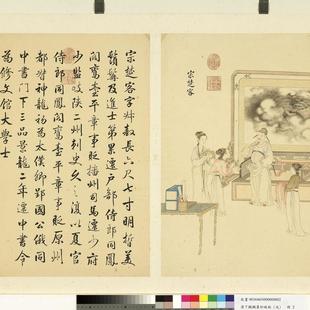 宗楚客
宗楚客字叔敖長六尺七寸明皙美
鬚髯及進士第累遷戶部侍郎同鳳
閣鸞臺平章事貶播州司馬遷少府
少監岐陝二州刺史久之復以夏官
侍郎同鳳閣鸞臺平章事貶原州
都督神龍初為太僕卿郢國公俄同
中書門下三品景龍二年遷中書令
為修文館大學士